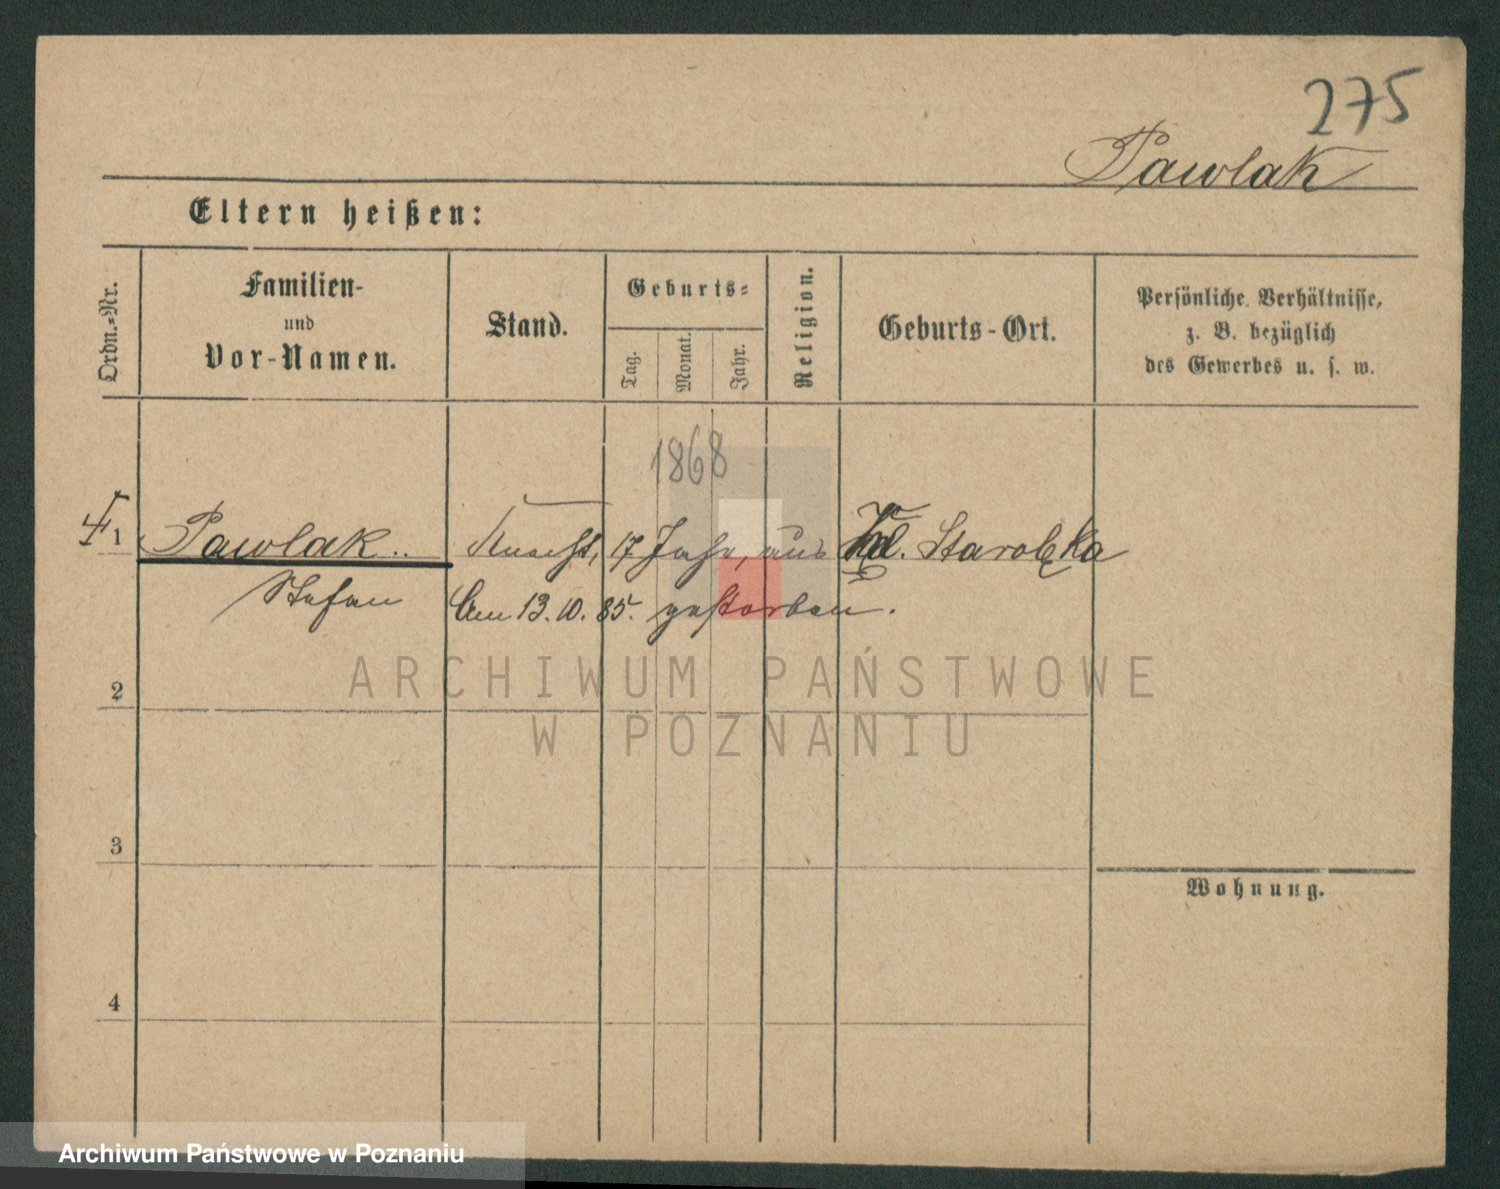 275
Pawlak
Eltern heißen:
Ordn.-Nr.
Familien-
und
Vor-Namen.
Stand.
Geburts-
Tag.
Monat.
Jahr.
Religion.
Geburts-Ort.
Persönliche Verhältnisse,
z. B. bezüglich
des Gewerbes u. s. w.
1868
1 Pawlak Knecht, 17 Jahr, aus Kl. Starolęka
Stefan Am 13. 10. 85. gestorben.
2
3
Wohnung.
4
ARCHIWUM PAŃSTWOWE
W POZNANIU
Archiwum Państwowe w Poznaniu